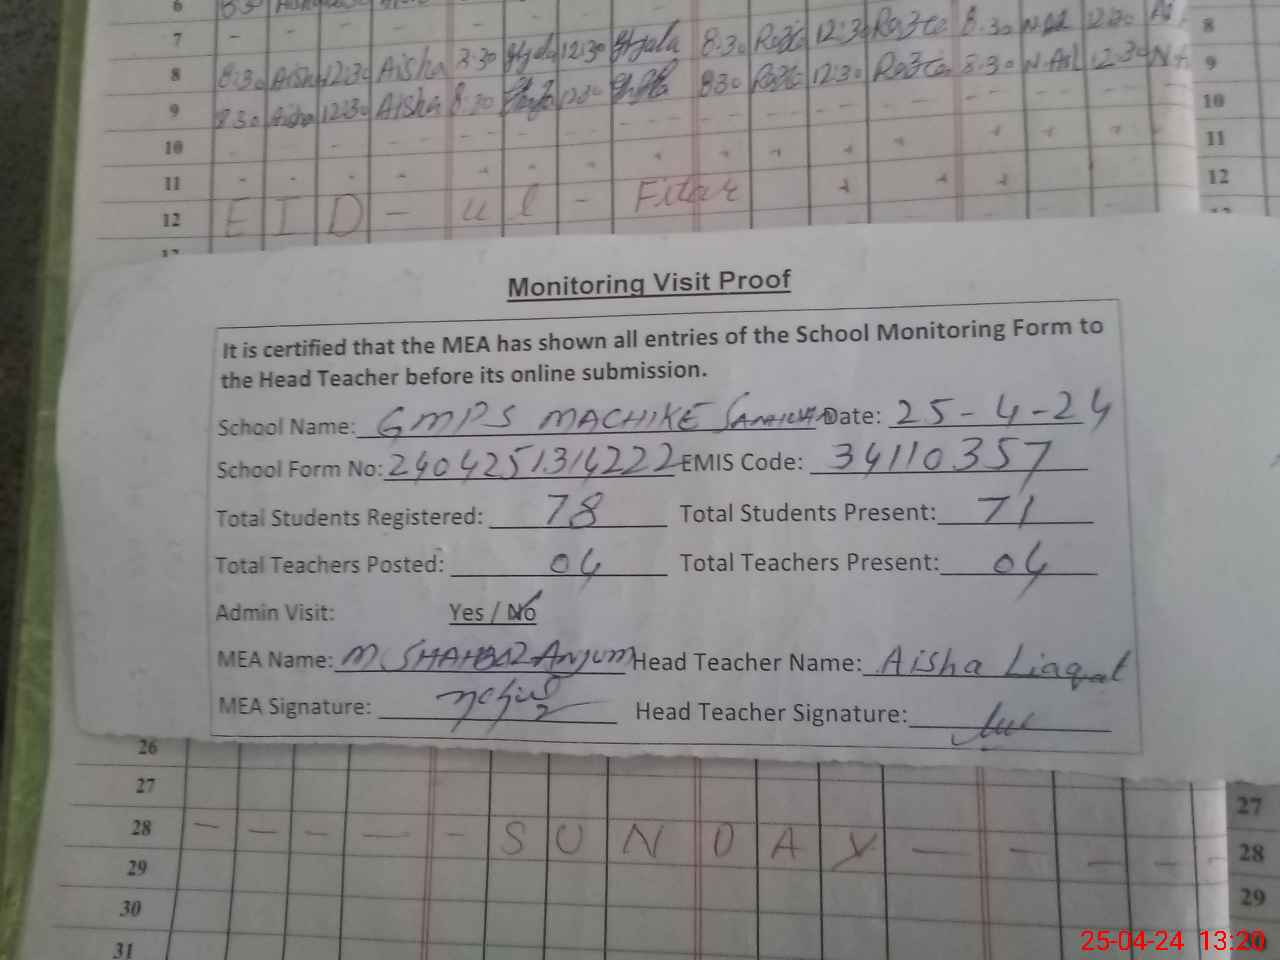 6 8:30
7 - - - - 8
8 8:30 Aisha 12:30 Aisha 8:30 12:30 8:30 12:30 8:30 12:30 9
9 8:30 Aisha 12:30 Aisha 8:30 12:30 830 12:30 8:30 12:30
10 10
11 11
12 E I D - u l - Fitar 12
Monitoring Visit Proof
It is certified that the MEA has shown all entries of the School Monitoring Form to
the Head Teacher before its online submission.
School Name: GMPS MACHIKE Date: 25-4-24
School Form No: 2404251314222 EMIS Code: 34110357
Total Students Registered: 78 Total Students Present: 71
Total Teachers Posted: 04 Total Teachers Present: 04
Admin Visit: Yes / No
MEA Name: M. SHAHBAZ Anjum Head Teacher Name: Aisha Liaqat
MEA Signature: Head Teacher Signature:
26
27 27
28 - - - - - S U N D A Y - - - - - 28
29 29
30
31
25-04-24 13:20